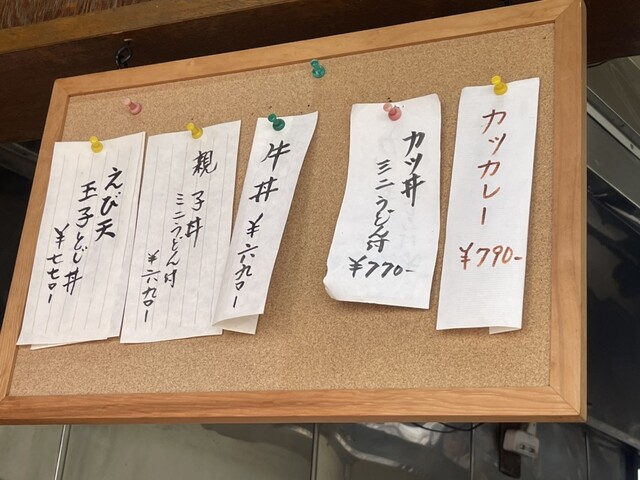 カツカレー
¥790-
カツ丼
ミニうどん付
¥770-
牛丼 ¥六九〇ー
親子丼
ミニうどん付
¥六九〇ー
えび天
玉子とじ丼
¥七七〇ー